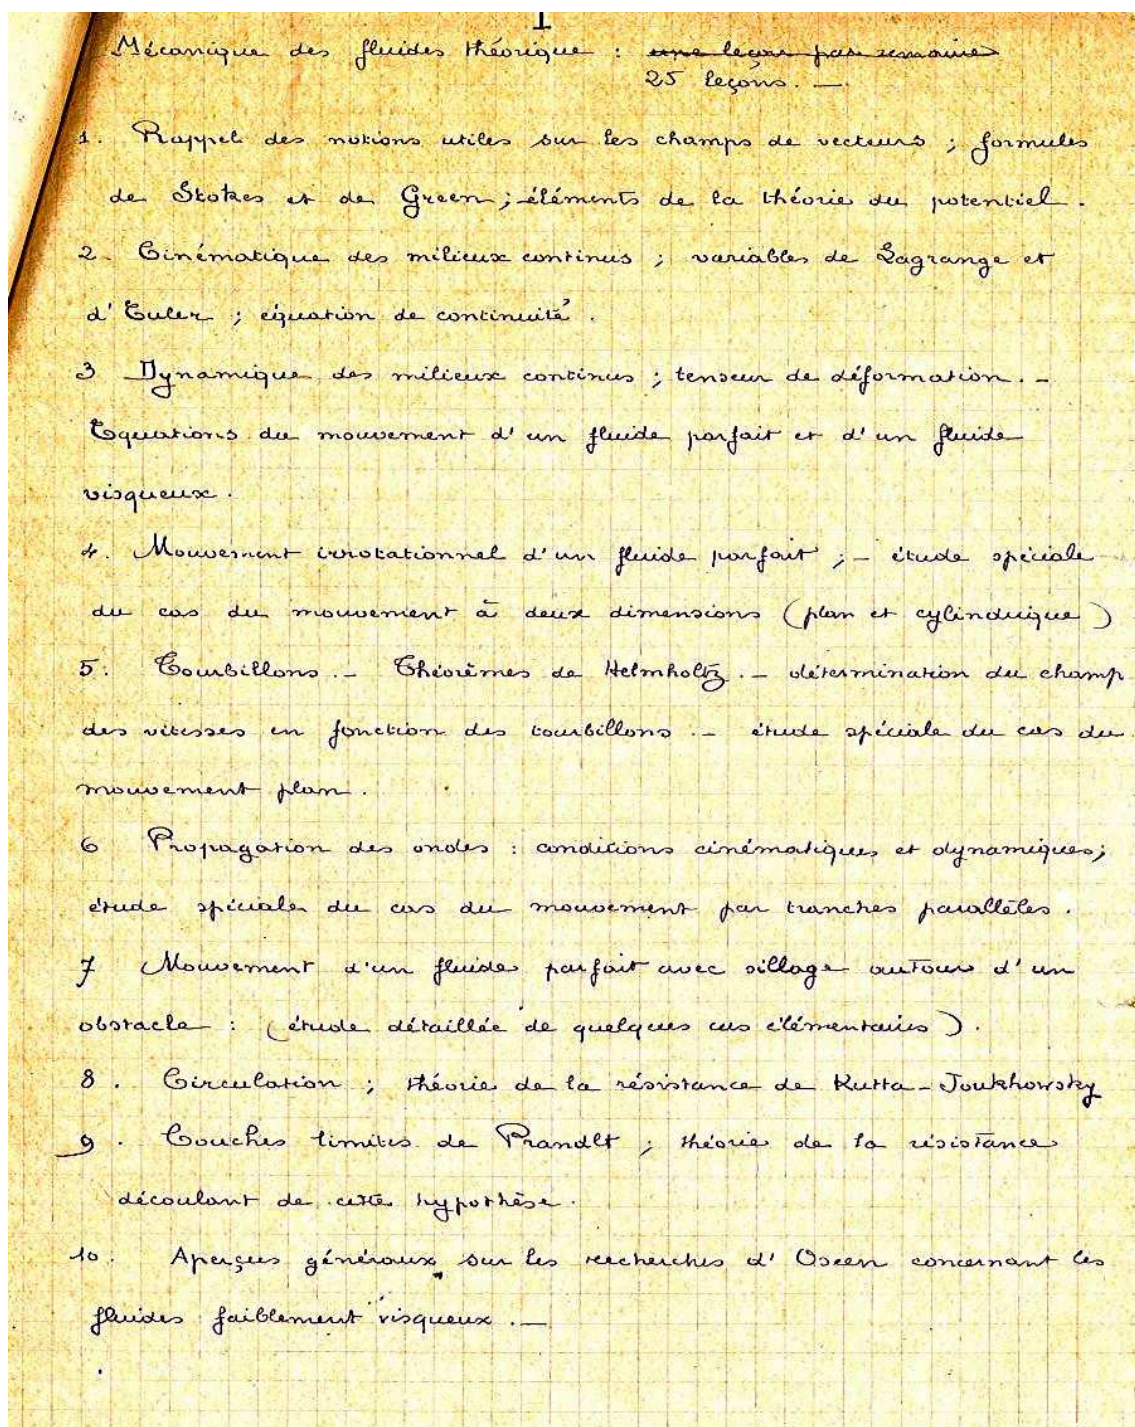 I
Mécanique des fluides théorique : une leçon par semaine
25 leçons. —
1. Rappel des notions utiles sur les champs de vecteurs ; formules
de Stokes et de Green ; éléments de la théorie du potentiel.
2. Cinématique des milieux continus ; variables de Lagrange et
d'Euler ; équation de continuité.
3 Dynamique des milieux continus ; tenseur de déformation. -
Equations du mouvement d'un fluide parfait et d'un fluide
visqueux.
4. Mouvement irrotationnel d'un fluide parfait ; - étude spéciale
du cas du mouvement à deux dimensions (plan et cylindrique)
5. Tourbillons. - Théorèmes de Helmholtz. - détermination du champ
des vitesses en fonction des tourbillons. - étude spéciale du cas du
mouvement plan.
6 Propagation des ondes : conditions cinématiques et dynamiques ;
étude spéciale du cas du mouvement par tranches parallèles.
7 Mouvement d'un fluide parfait avec sillage autour d'un
obstacle : (étude détaillée de quelques cas élémentaires).
8. Circulation ; théorie de la résistance de Kutta-Joukhowsky
9. Couches limites de Prandlt ; théorie de la résistance
découlant de cette hypothèse.
10. Aperçus généraux sur les recherches d'Oseen concernant les
fluides faiblement visqueux. —